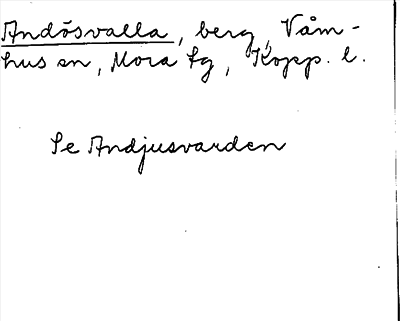 Andösvalla, berg, Våm-
hus sn, Mora tg, Kopp. l.
Se Andjusvarden